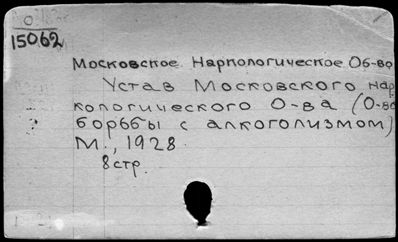 О
15062
Московское Наркологическое Об-во
Устав Московского нар
кологического О-ва (О-во
борьбы с алкоголизмом)
М., 1928.
8 стр.